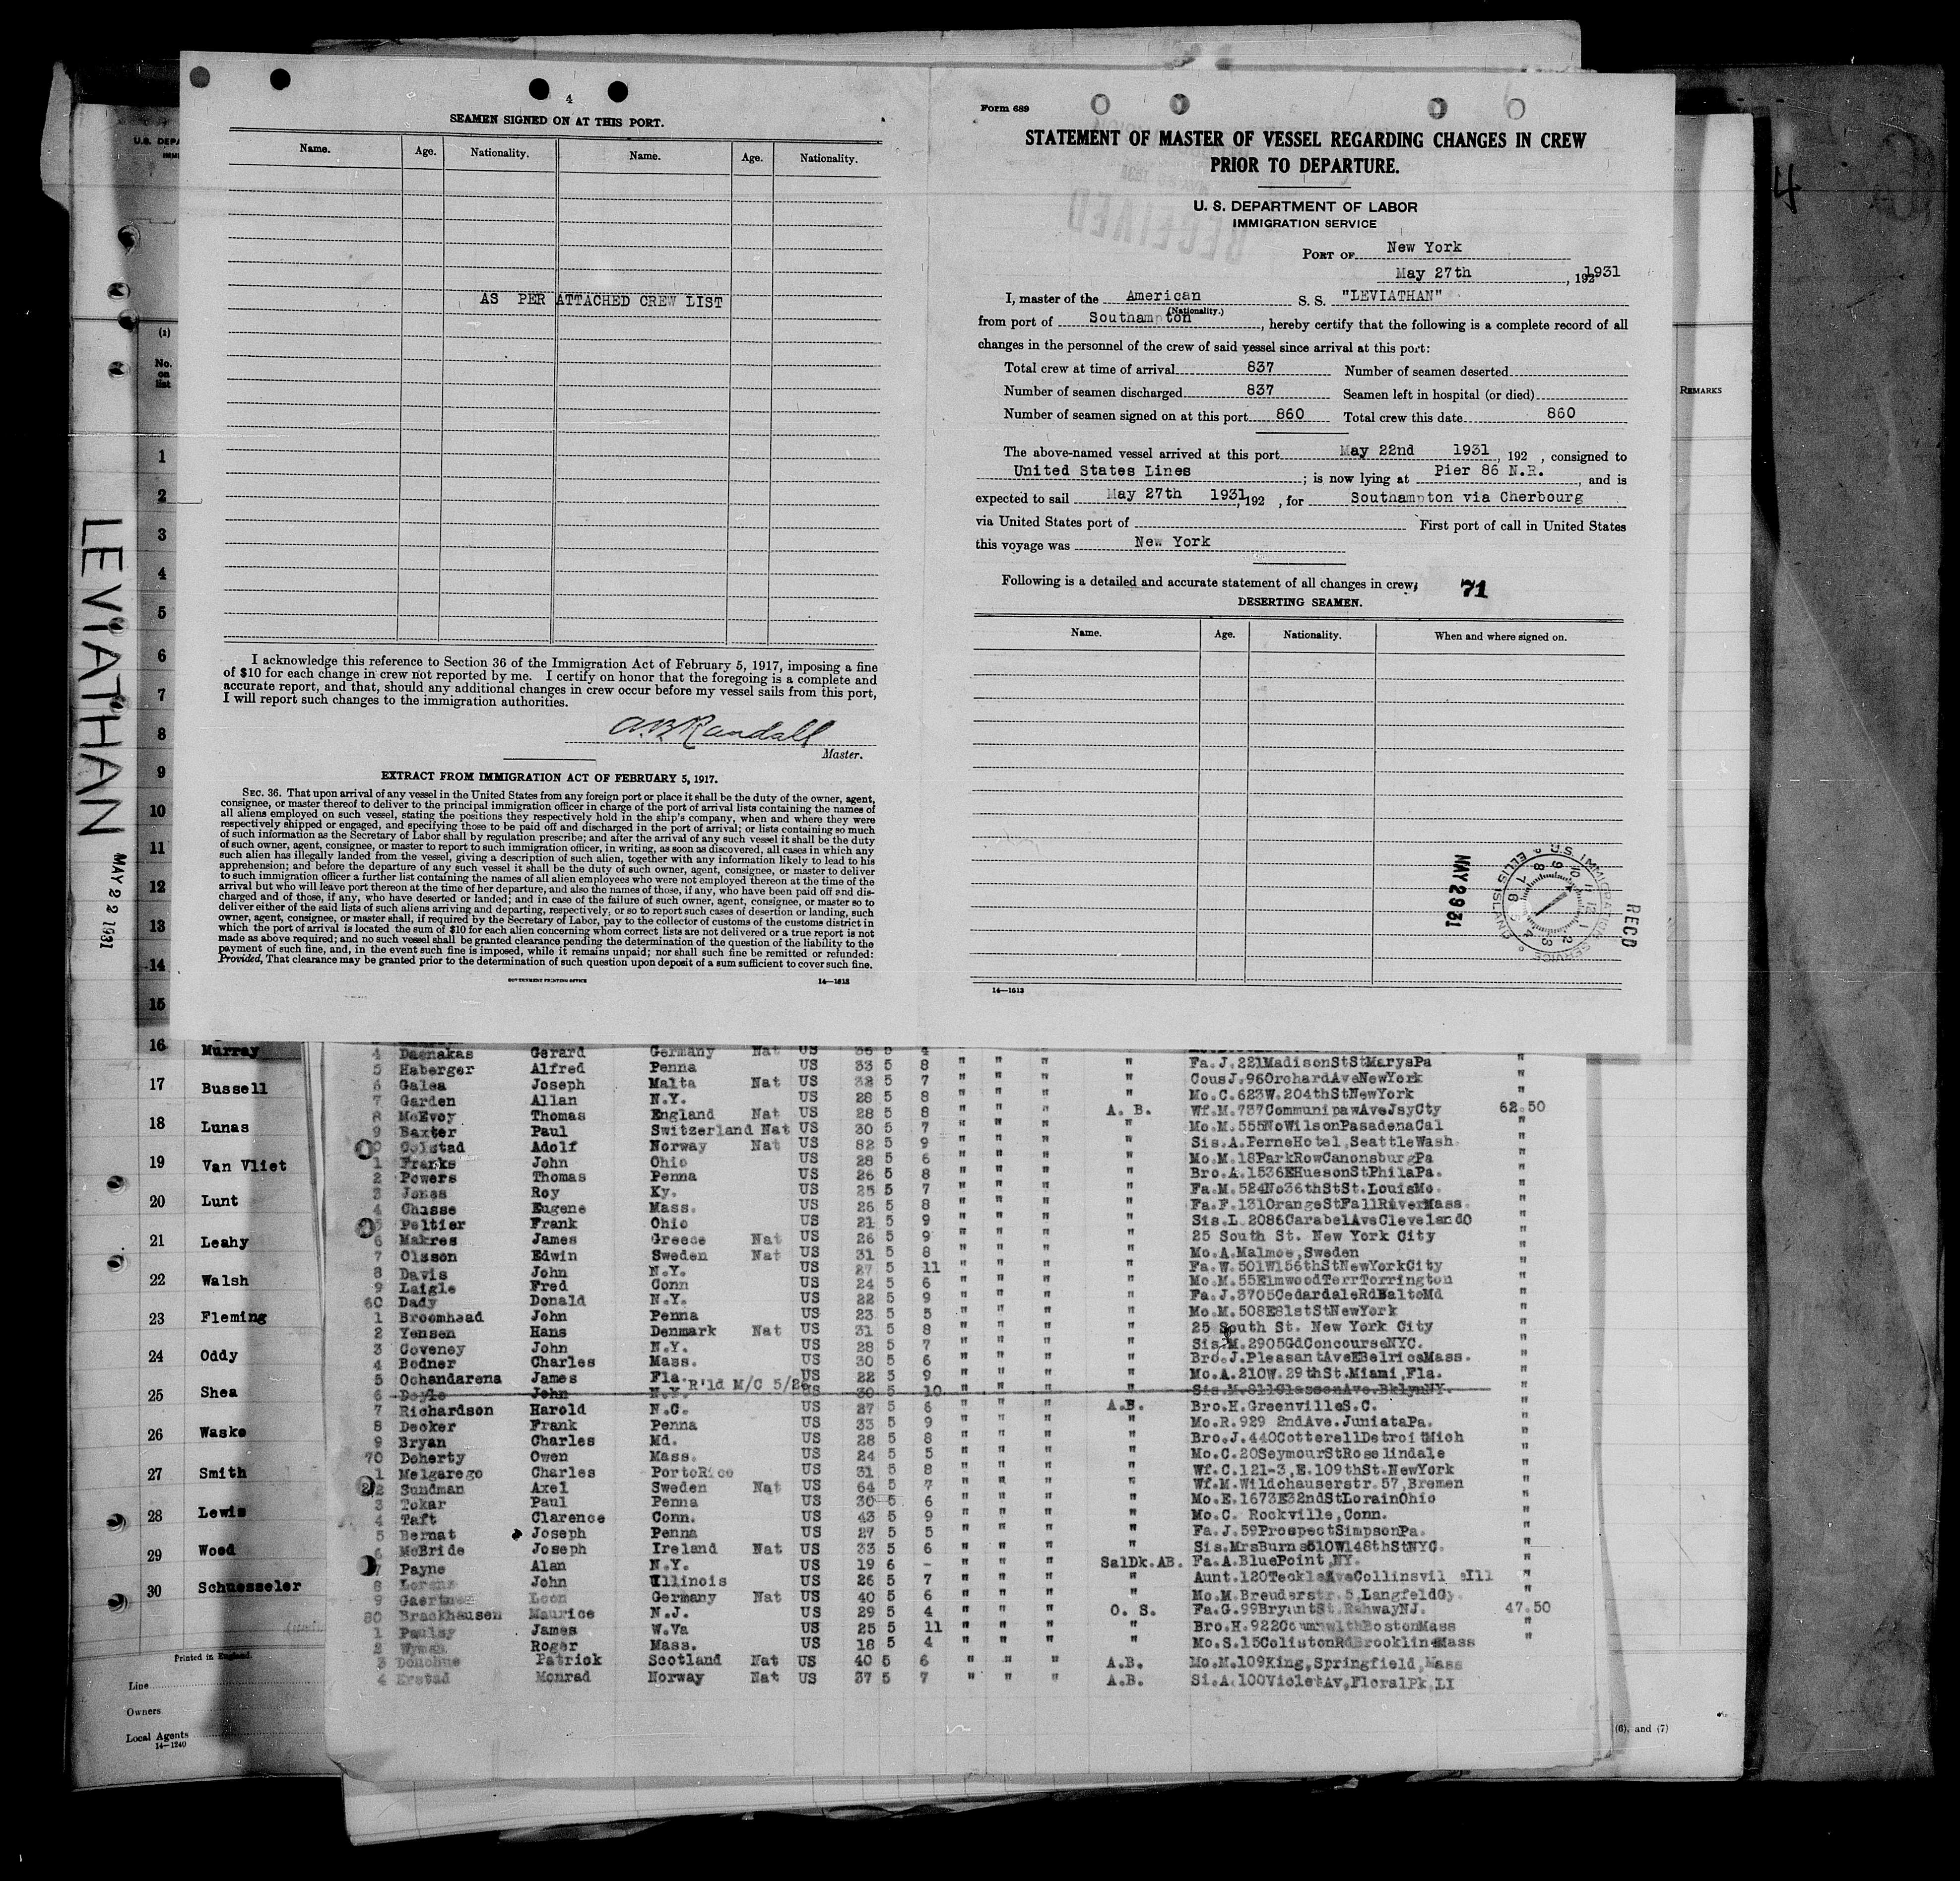 4
SEAMEN SIGNED ON AT THIS PORT.
Name. Age. Nationality. Name. Age. Nationality.
AS PER ATTACHED CREW LIST
I acknowledge this reference to Section 36 of the Immigration Act of February 5, 1917, imposing a fine
of $10 for each change in crew not reported by me. I certify on honor that the foregoing is a complete and
accurate report, and that, should any additional changes in crew occur before my vessel sails from this port,
I will report such changes to the immigration authorities.
A.B. Randall
Master.
EXTRACT FROM IMMIGRATION ACT OF FEBRUARY 5, 1917.
SEC. 36. That upon arrival of any vessel in the United States from any foreign port or place it shall be the duty of the owner, agent,
consignee, or master thereof to deliver to the principal immigration officer in charge of the port of arrival lists containing the names of
all aliens employed on such vessel, stating the positions they respectively hold in the ship's company, when and where they were
respectively shipped or engaged, and specifying those to be paid off and discharged in the port of arrival; or lists containing so much
of such information as the Secretary of Labor shall by regulation prescribe; and after the arrival of any such vessel it shall be the duty
of such owner, agent, consignee, or master to report to such immigration officer, in writing, as soon as discovered, all cases in which any
such alien has illegally landed from the vessel, giving a description of such alien, together with any information likely to lead to his
apprehension; and before the departure of any such vessel it shall be the duty of such owner, agent, consignee, or master to deliver
to such immigration officer a further list containing the names of all alien employees who were not employed thereon at the time of the
arrival but who will leave port thereon at the time of her departure, and also the names of those, if any, who have been paid off and dis-
charged and of those, if any, who have deserted or landed; and in case of the failure of such owner, agent, consignee, or master so to
deliver either of the said lists of such aliens arriving and departing, respectively, or so to report such cases of desertion or landing, such
owner, agent, consignee, or master shall, if required by the Secretary of Labor, pay to the collector of customs of the customs district in
which the port of arrival is located the sum of $10 for each alien concerning whom correct lists are not delivered or a true report is not
made as above required; and no such vessel shall be granted clearance pending the determination of the question of the liability to the
payment of such fine, and, in the event such fine is imposed, while it remains unpaid; nor shall such fine be remitted or refunded:
Provided, That clearance may be granted prior to the determination of such question upon deposit of a sum sufficient to cover such fine.
GOVERNMENT PRINTING OFFICE 14—1613
Form 689
STATEMENT OF MASTER OF VESSEL REGARDING CHANGES IN CREW
PRIOR TO DEPARTURE.
U. S. DEPARTMENT OF LABOR
IMMIGRATION SERVICE
RECEIVED
PORT OF New York
May 27th , 192 1931
I, master of the American S. S. "LEVIATHAN"
(Nationality.)
from port of Southampton , hereby certify that the following is a complete record of all
changes in the personnel of the crew of said vessel since arrival at this port:
Total crew at time of arrival 837 Number of seamen deserted
Number of seamen discharged 837 Seamen left in hospital (or died)
Number of seamen signed on at this port 860 Total crew this date 860
The above-named vessel arrived at this port May 22nd 1931 , 192 , consigned to
United States Lines ; is now lying at Pier 86 N.R. , and is
expected to sail May 27th 1931 , 192 , for Southampton via Cherbourg
via United States port of First port of call in United States
this voyage was New York
Following is a detailed and accurate statement of all changes in crew: 71
DESERTING SEAMEN.
Name. Age. Nationality. When and where signed on.
MAY 29 31
U.S. IMMIGRATION SERVICE ELLIS ISLAND
RECD
14—1613
4
REMARKS
U.S. DEPA
IMMI
(1)
No.
on
list
LEVIATHAN
MAY 22 1931
1
2
3
4
5
6
7
8
9
10
11
12
13
14
15
16 Murray
17 Bussell
18 Lunas
19 Van Vliet
20 Lunt
21 Leahy
22 Walsh
23 Fleming
24 Oddy
25 Shea
26 Waske
27 Smith
28 Lewis
29 Wood
30 Schuesseler
Printed in England.
Line
Owners
Local Agents
14—1240
4 Dagnakas Gerard Germany Nat US 36 5 4
5 Haberger Alfred Penna US 33 5 8 " " " " Fa.J.221MadisonStStMarysPa "
6 Galea Joseph Malta Nat US 32 5 7 " " " " CousJ.96OrchardAveNewYork "
7 Garden Allan N.Y. US 28 5 8 " " " " Mo.C.623W.204thStNewYork "
8 McEvoy Thomas England Nat US 28 5 8 " " " A. B. Wf.M.737CommunipawAveJsyCty 62.50
9 Baxter Paul Switzerland Nat US 30 5 7 " " " " Mo.M.555NoWilsonPasadenaCal "
Colstad Adolf Norway Nat US 82 5 9 " " " " Sis.A.PerneHotel,SeattleWash. "
1 Franks John Ohio US 28 5 6 " " " " Mo.M.18ParkRowCanonsburgPa "
2 Powers Thomas Penna US 26 5 8 " " " " Bro.A.1536EHuesonStPhilaPa. "
3 Jones Roy Ky. US 25 5 7 " " " " Fa.M.524No36thStSt.LouisMo. "
4 Chasse Eugene Mass. US 26 5 8 " " " " Fa.F.131OrangeStFallRiverMass. "
5 Peltier Frank Ohio US 21 5 9 " " " " Sis.L.2086CarabelAveClevelandO "
6 Makres James Greece Nat US 26 5 9 " " " " 25 South St. New York City "
7 Olsson Edwin Sweden Nat US 31 5 8 " " " " Mo.A.Malmoe,Sweden "
8 Davis John N.Y. US 27 5 11 " " " " Fa.W.501W156thStNewYorkCity "
9 Laigle Fred Conn US 24 5 6 " " " " Mo.M.55ElmwoodTerrTorrington "
60 Dady Donald N.Y. US 22 5 9 " " " " Fa.J.3705CedardaleRdBaltoMd "
1 Broomhead John Penna US 23 5 5 " " " " Mo.M.508E81stStNewYork "
2 Yensen Hans Denmark Nat US 31 5 8 " " " " 25 South St. New York City "
3 Coveney John N.Y. US 28 5 7 " " " " Sis.M.2905GdConcourseNYC. "
4 Bodner Charles Mass. US 30 5 6 " " " " Bro.J.PleasantAveEBelricaMass. "
5 Ochandarena James Fla. US 22 5 9 " " " " Mo.A.210W.29thSt.Miami,Fla. "
6 Doyle John N.Y. R'ld M/C 5/26 US 30 5 10 Sis.M.811ClassonAve.BklynNY. "
7 Richardson Harold N.C. US 27 5 6 " " " A.B. Bro.H.GreenvilleS.C. "
8 Decker Frank Penna US 33 5 9 " " " " Mo.R.929 2ndAve.JuniataPa. "
9 Bryan Charles Md. US 28 5 8 " " " " Bro.J.440CotterellDetroitMich "
70 Doherty Owen Mass. US 24 5 5 " " " " Mo.C.20SeymourStRoslindale "
1 Melgarego Charles PortoRico US 31 5 8 " " " " Wf.C.121-3,E.109thSt.NewYork "
2 Sundman Axel Sweden Nat US 64 5 7 " " " " Wf.M.Wildehauserstr.57,Bremen "
3 Tokar Paul Penna US 30 5 6 " " " " Mo.E.1673E32ndStLorainOhio "
4 Taft Clarence Conn. US 43 5 9 " " " " Mo.C. Rockville,Conn. "
5 Bernat Joseph Penna US 27 5 5 " " " " Fa.J.59ProspectSimpsonPa. "
6 McBride Joseph Ireland Nat US 33 5 6 " " " " Sis.MrsBurns510W148thStNYC. "
7 Payne Alan N.Y. US 19 6 - " " " SalDk.AB. Fa.A.BluePoint,NY. "
8 Lorenz John Illinois US 26 5 7 " " " " Aunt.120TeckleAveCollinsvil eIll "
9 Gaertner Leon Germany Nat US 40 5 6 " " " " Mo.M.Breuderstr.5,LangfeldGy.
80 Brackhausen Maurice N.J. US 29 5 4 " " " O. S. Fa.G.99BryantSt.RahwayNJ. 47.50
1 Paulsy James W.Va US 25 5 11 " " " " Bro.H.922CommwlthBostonMass "
2 Wyman Roger Mass. US 18 5 4 " " " " Mo.S.15ColistonRdBrooklineMass "
3 Donohue Patrick Scotland Nat US 40 5 6 " " " A.B. Mo.M.109King,Springfield,Mass
4 Erstad Monrad Norway Nat US 37 5 7 " " " A.B. Si.A.100VioletAv,FloralPk,LI
(6), and (7)